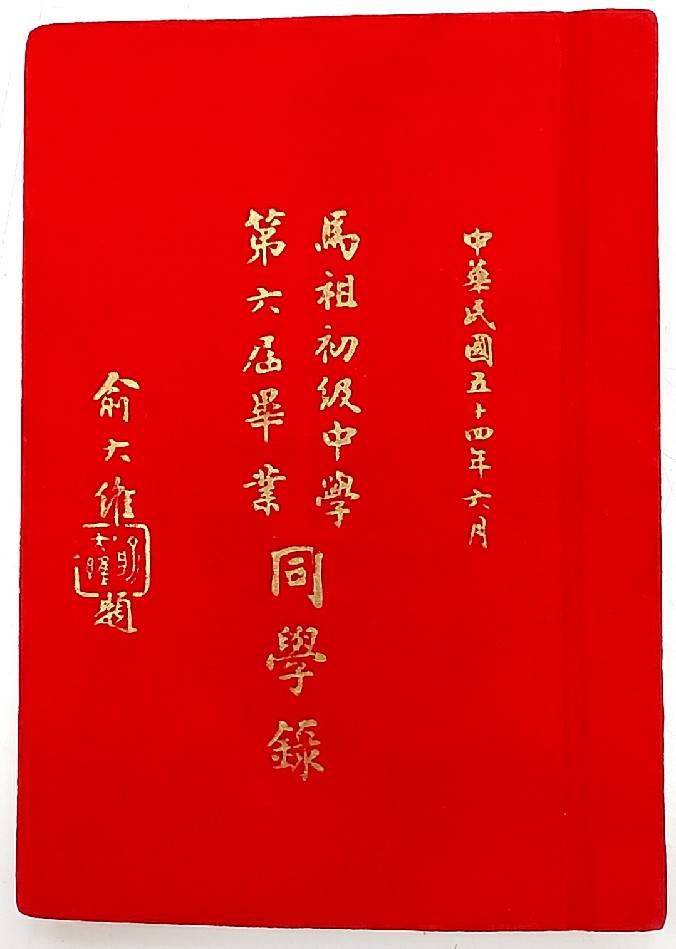 中華民國五十四年六月
馬祖初級中學
第六屆畢業
同學錄
俞大維題